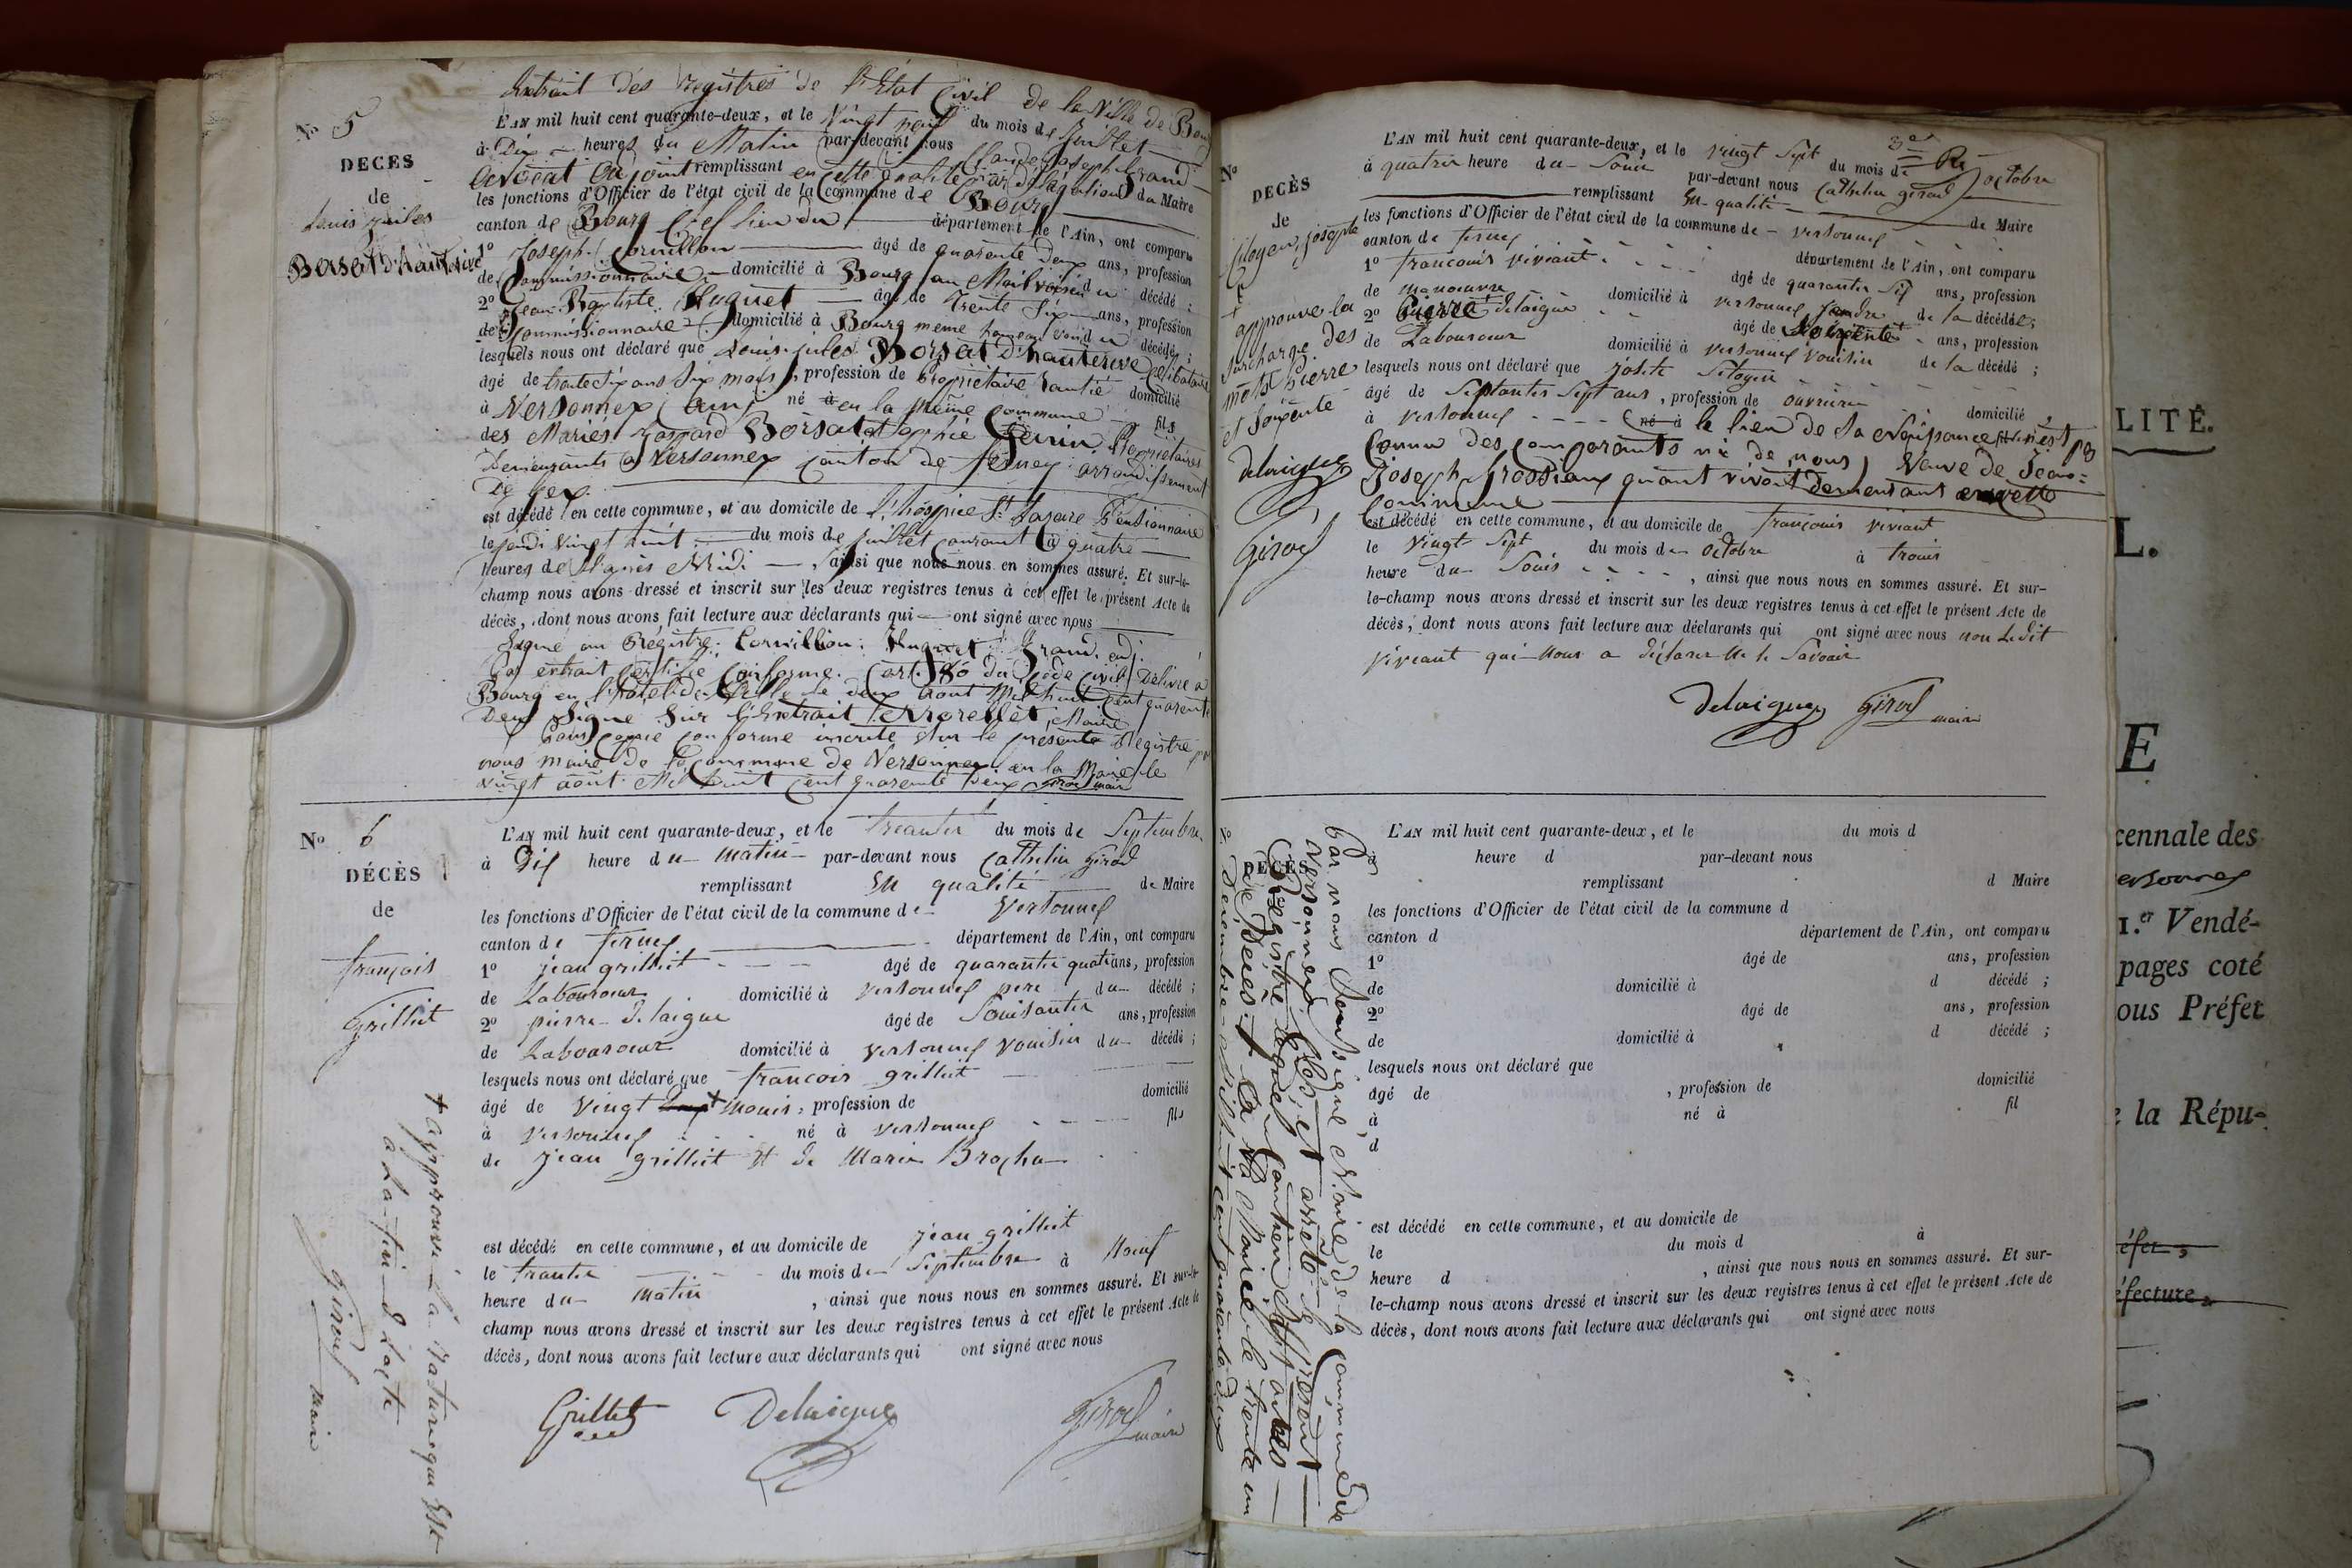 Extrait des registres de l'Etat Civil de la Ville de Bourg
N° 5
L'AN mil huit cent quarante-deux, et le Vingt neuf du mois de Juillet
à Dix heures du Matin par-devant nous Claude Joseph Grand
DECES
avocat adjoint remplissant en cette qualité par délégation du Maire
les fonctions d'Officier de l'état civil de la commune de Bourg
de
canton de Bourg Chef lieu du département de l'Ain, ont comparu
Louis jules
1° Joseph Corvillon âgé de quarente Deux ans, profession
Borsat d'hauterive
de Commissionnaire domicilié à Bourg au Mail voisin du décédé ;
2° Jean Baptiste Huguet âgé de Trente Six ans, profession
de Commissionnaire domicilié à Bourg meme voisin du décédé ;
lesquels nous ont déclaré que Louis jules Borsat d'hauterive Célibataire
âgé de trente Six ans Six mois, profession de Propriétaire Rentié domicilié
à Versonnex (ain) né en la même Commune fils
des Mariés Gaspard Borsat et Sophie Perrin Propriétaires
Demeurants a Versonnex canton de ferney arrondissement
De Gex.
est décédé en cette commune, et au domicile de l'hospice St Lazare Pensionnaire
le jeudi vingt huit du mois de juillet courant à quatre
heures de l'après Midi, ainsi que nous nous en sommes assuré. Et sur-le-
champ nous avons dressé et inscrit sur les deux registres tenus à cet effet le présent Acte de
décès, dont nous avons fait lecture aux déclarants qui ont signé avec nous
Signé au Régistre: Corvillion: Huguet: Grand. adj.
Por extrait Certifié Conforme. (art. 80 du Code Civil) Délivré a
Bourg en l'hotel de Ville le deux aout Mil huit Cent quarente
Deux Signé Sur l'Extrait Maire
Pour Copie conforme inscrite Sur le présente Registre par
nous maire de la Commune de Versonnex en la Mairie le
vingt aout Mil huit Cent quarente Deux Girod maire
N° 6
L'AN mil huit cent quarante-deux, et le treante du mois de Septembre
DÉCÈS
à Dix heure du matin par-devant nous Cathelin Girod
remplissant En qualité de Maire
de
les fonctions d'Officier de l'état civil de la commune de Versonnex
canton de ferney département de l'Ain, ont comparu
françois
1° jean grilliet âgé de quarantes quatre ans, profession
de Laboureur domicilié à Versonnex pere du décédé ;
Grilliet
2° pierre Delaigue âgé de Souisante ans, profession
de Laboureur domicilié à Versonnex Vouisin du décédé ;
lesquels nous ont déclaré que françois grilliet
âgé de Vingt + Mouis, profession de domicilié
à Versonnex né à Versonnex fils
de jean grilliet Et de Marie Brochu
est décédé en cette commune, et au domicile de jean grilliet
le trante du mois de Septembre à Nouf
heure du Matin, ainsi que nous nous en sommes assuré. Et sur-le-
champ nous avons dressé et inscrit sur les deux registres tenus à cet effet le présent Acte de
décès, dont nous avons fait lecture aux déclarants qui ont signé avec nous
Grilliet Delaigue Girod maire
+ approuve La rature qui Est
a La fin d Lacte
Girod Maire
3e Rx
N°
L'AN mil huit cent quarante-deux, et le Vingt Sept du mois de octobre
à quatre heure du Souir par-devant nous Cathelin girod
DECÈS
remplissant En qualité de Maire
de
les fonctions d'Officier de l'état civil de la commune de Versonnex
Citoyen, josepte
canton de ferney département de l'Ain, ont comparu
1° francouis Viviant âgé de quarante Six ans, profession
de Manoeuvre domicilié à Versonnex Jandre de la décédé ;
2° Pierre Delaigue âgé de Soixente ans, profession
de Laboureur domicilié à Versonnex Vouisin de la décédé ;
lesquels nous ont déclaré que josete Sitoyen
âgé de Septantes Sept ans, profession de ouvriere domicilié
à Versonnex né à le lieu de Sa Naissance n'est pas
Connu des Comparants ni de nous) Veuve de Jean-
Joseph Grossiaux quant vivant demeurant en cette
Commune
est décédé en cette commune, et au domicile de françouis Viviant
le Vingt Sept du mois de octobre à trouis
heure du Souir, ainsi que nous nous en sommes assuré. Et sur-
le-champ nous avons dressé et inscrit sur les deux registres tenus à cet effet le présent Acte de
décès, dont nous avons fait lecture aux déclarants qui ont signé avec nous non Ledit
Viviant qui Nous a déclarer Ne le Savoir
Delaigue Girod maire
+ approuve la
surcharge des
mots Pierre
et Soixente
delaigue
Girod
N°
L'AN mil huit cent quarante-deux, et le du mois d
heure d par-devant nous
DECÈS
remplissant d Maire
les fonctions d'Officier de l'état civil de la commune d
canton d département de l'Ain, ont comparu
1° âgé de ans, profession
de domicilié à d décédé ;
2° âgé de ans, profession
de domicilié à d décédé ;
lesquels nous ont déclaré que
âgé de , profession de domicilié
à né à fil
d
est décédé en cette commune, et au domicile de
le du mois d à
heure d , ainsi que nous nous en sommes assuré. Et sur-
le-champ nous avons dressé et inscrit sur les deux registres tenus à cet effet le présent Acte de
décès, dont nous avons fait lecture aux déclarants qui ont signé avec nous
Par nous Soussigné Maire de la Commune de
Versonnex, Clos et arrêté le présent
Registre lequel Contien Sept actes
de Décès. En La Mairie le trente un
Décembre mil huit cent quarante deux
LITÉ.
L.
E
cennale des
ersonnex
1.er Vendé-
pages coté
ous Préfet
e la Répu-
éfet,
éfecture,